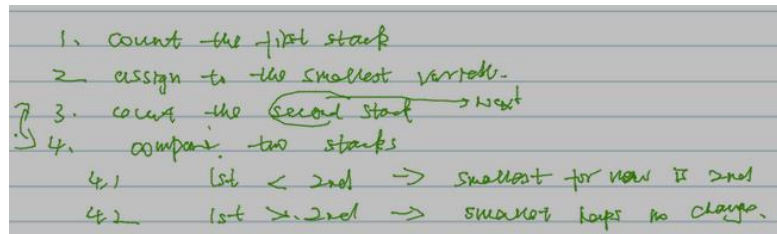 1. count the first stack
2 assign to the smallest variable.
3. count the second stack → next
4. compare two stacks
4.1 1st < 2nd → smallest for now is 2nd
4.2 1st >. 2nd → smallest keeps no change.